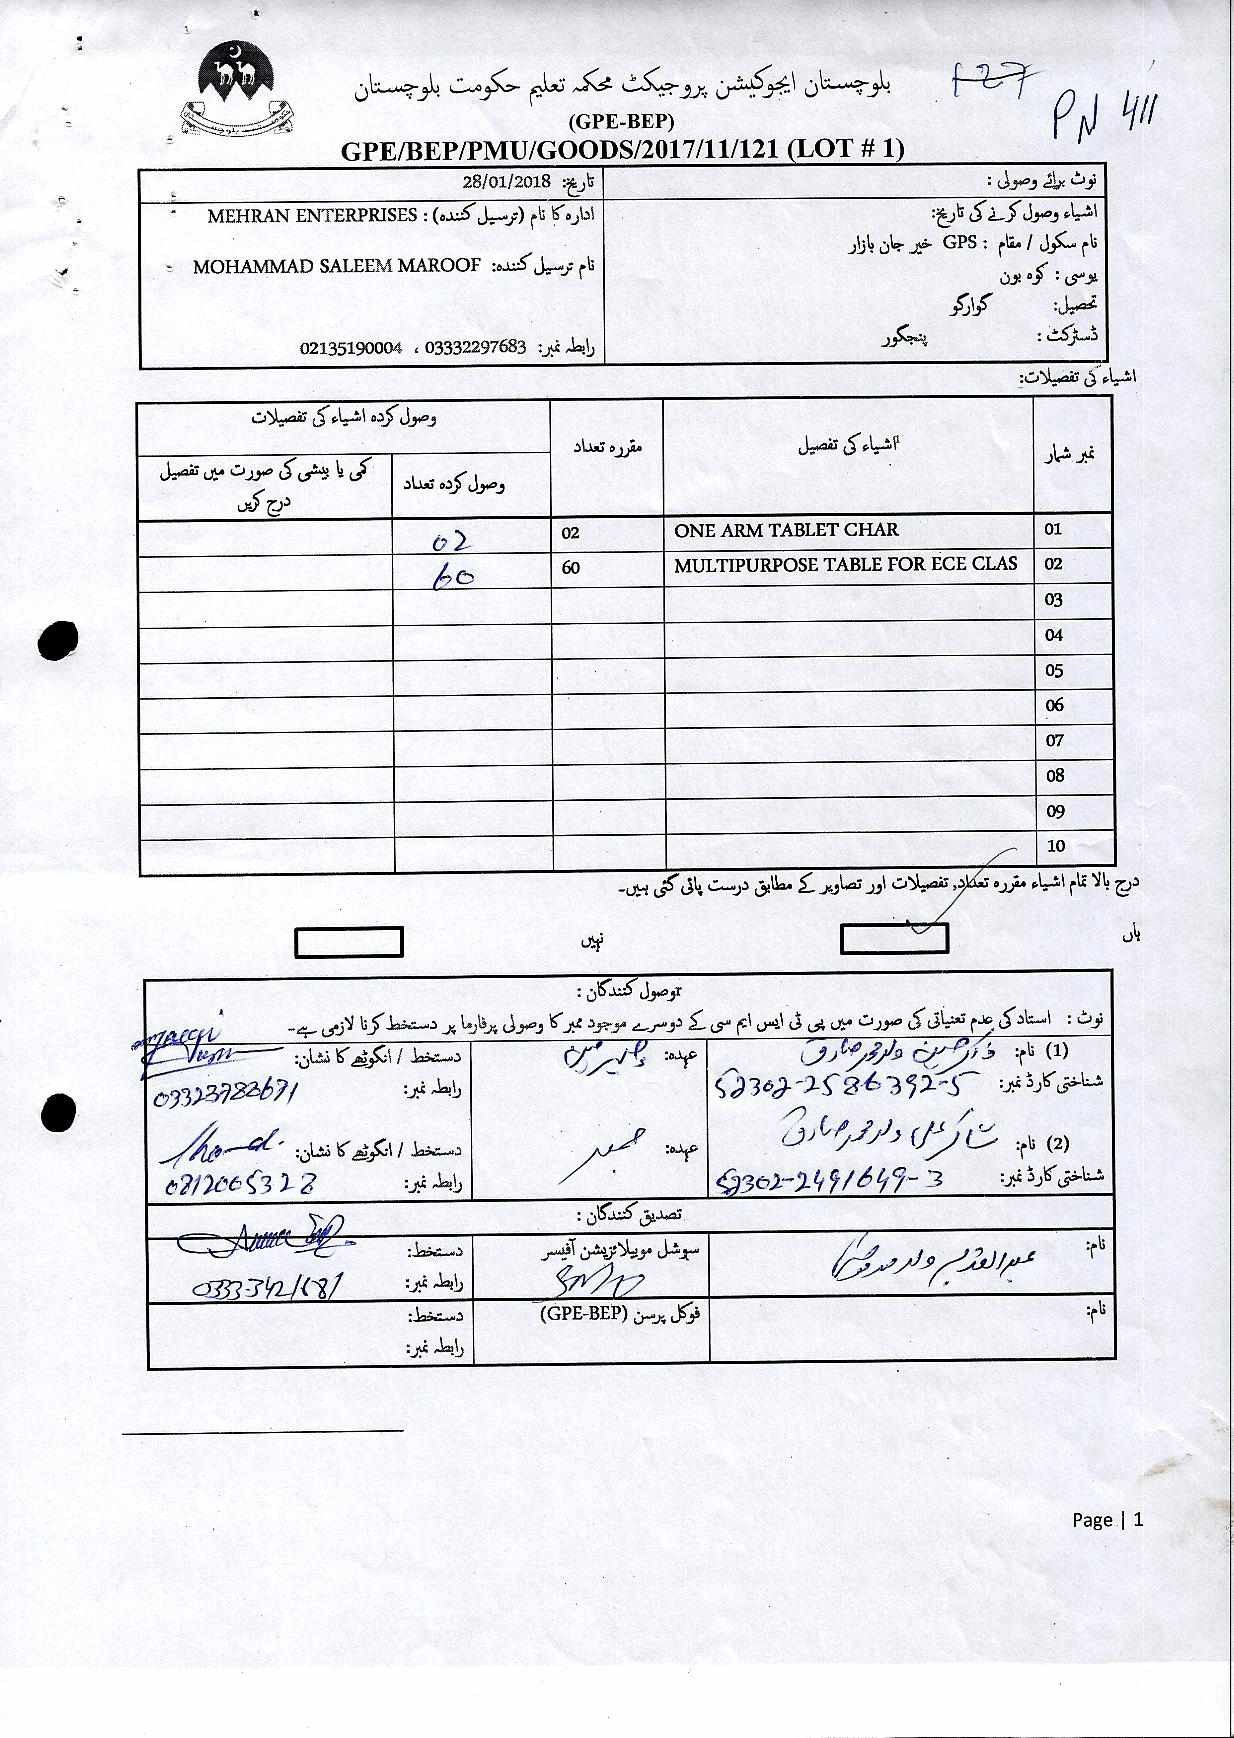 بلوچستان ایجوکیشن پروجیکٹ محکمہ تعلیم حکومت بلوچستان
PN 411
(GPE-BEP)
GPE/BEP/PMU/GOODS/2017/11/121 (LOT # 1)
نوٹ برائے وصولی :
تاریخ: 28/01/2018
اشیاء وصول کرنے کی تاریخ:
نام سکول / مقام : GPS خیر جان بازار
یوسی : کوہ بون
تحصیل: گوارگو
ڈسٹرکٹ : پنجگور
ادارہ کا نام (ترسیل کنندہ) : MEHRAN ENTERPRISES
نام ترسیل کنندہ: MOHAMMAD SALEEM MAROOF
رابطہ نمبر: 03332297683 ، 02135190004
اشیاء کی تفصیلات:
نمبر شمار اشیاء کی تفصیل مقررہ تعداد وصول کردہ اشیاء کی تفصیلات
وصول کردہ تعداد کمی یا بیشی کی صورت میں تفصیل درج کریں
01 ONE ARM TABLET CHAR 02 02
02 MULTIPURPOSE TABLE FOR ECE CLAS 60 60
03
04
05
06
07
08
09
10
درج بالا تمام اشیاء مقررہ تعداد, تفصیلات اور تصاویر کے مطابق درست پائی گئی ہیں۔
ہاں نہیں
وصول کنندگان :
نوٹ : استاد کی عدم تعنیاتی کی صورت میں پی ٹی ایس ایم سی کے دوسرے موجود ممبر کا وصولی پرفارما پر دستخط کرنا لازمی ہے۔
(1) نام: ولد محمد صادق عہدہ: دستخط / انگوٹھے کا نشان:
شناختی کارڈ نمبر: 52302-2586392-5 رابطہ نمبر: 03323783671
(2) نام: شاکر علی ولد محمد صادق عہدہ: ممبر دستخط / انگوٹھے کا نشان:
شناختی کارڈ نمبر: 52302-2491649-3 رابطہ نمبر: 0812065328
تصدیق کنندگان :
نام: ولد سوشل موبیلائزیشن آفیسر دستخط:
رابطہ نمبر: 0333-3421681
نام: فوکل پرسن (GPE-BEP) دستخط:
رابطہ نمبر:
Page | 1